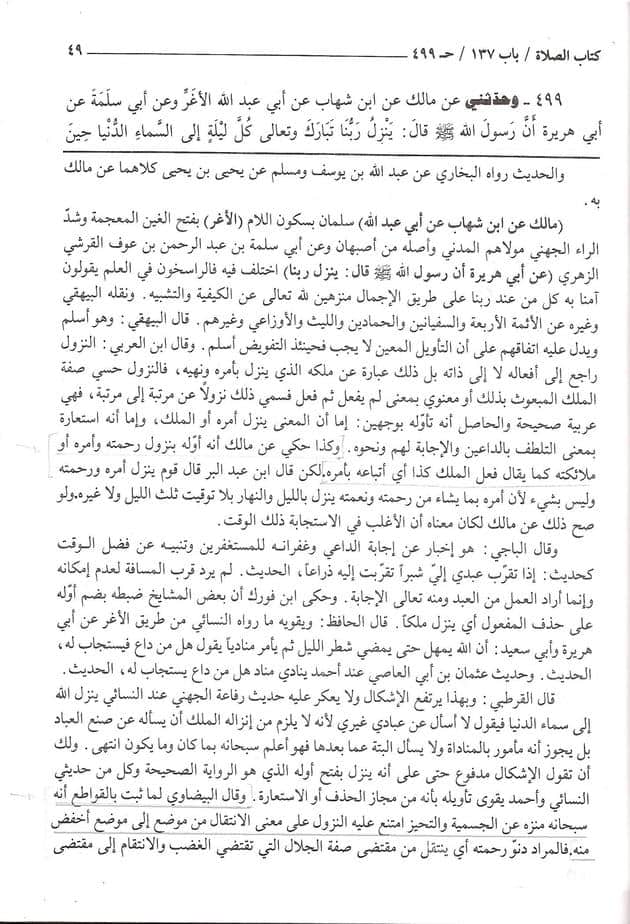 كتاب الصلاة / باب ١٣٧ / حـ ٤٩٩ ٤٩
٤٩٩ ـ وحدثني عن مالك عن ابن شهاب عن أبي عبد الله الأغَرِّ وعن أبي سلَمَةَ عن
أبي هريرة أَنَّ رَسولَ الله ﷺ قالَ: يَنْزِلُ رَبُّنا تَبَارَكَ وتعالى كُلَّ ليْلَةٍ إلى السَّماءِ الدُّنْيا حِينَ
والحديث رواه البخاري عن عبد الله بن يوسف ومسلم عن يحيى بن يحيى كلاهما عن مالك
به.
(مالك عن ابن شهاب عن أبي عبد الله) سلمان بسكون اللام (الأغر) بفتح الغين المعجمة وشدّ
الراء الجهني مولاهم المدني وأصله من أصبهان وعن أبي سلمة بن عبد الرحمن بن عوف القرشي
الزهري (عن أبي هريرة أن رسول الله ﷺ قال: ينزل ربنا) اختلف فيه فالراسخون في العلم يقولون
آمنا به كل من عند ربنا على طريق الإجمال منزهين لله تعالى عن الكيفية والتشبيه. ونقله البيهقي
وغيره عن الأئمة الأربعة والسفيانين والحمادين والليث والأوزاعي وغيرهم. قال البيهقي: وهو أسلم
ويدل عليه اتفاقهم على أن التأويل المعين لا يجب فحينئذ التفويض أسلم. وقال ابن العربي: النزول
راجع إلى أفعاله لا إلى ذاته بل ذلك عبارة عن ملكه الذي ينزل بأمره ونهيه، فالنزول حسي صفة
الملك المبعوث بذلك أو معنوي بمعنى لم يفعل ثم فعل فسمي ذلك نزولاً عن مرتبة إلى مرتبة، فهي
عربية صحيحة والحاصل أنه تأوّله بوجهين: إما أن المعنى ينزل أمره أو الملك، وإما أنه استعارة
بمعنى التلطف بالداعين والإجابة لهم ونحوه. وكذا حكي عن مالك أنه أوّله بنزول رحمته وأمره أو
ملائكته كما يقال فعل الملك كذا أي أتباعه بأمره. لكن قال ابن عبد البر قال قوم ينزل أمره ورحمته
وليس بشيء لأن أمره بما يشاء من رحمته ونعمته ينزل بالليل والنهار بلا توقيت ثلث الليل ولا غيره. ولو
صح ذلك عن مالك لكان معناه أن الأغلب في الاستجابة ذلك الوقت.
وقال الباجي: هو إخبار عن إجابة الداعي وغفرانه للمستغفرين وتنبيه عن فضل الوقت
كحديث: إذا تقرّب عبدي إليّ شبراً تقرّبت إليه ذراعاً، الحديث. لم يرد قرب المسافة لعدم إمكانه
وإنما أراد العمل من العبد ومنه تعالى الإجابة. وحكى ابن فورك أن بعض المشايخ ضبطه بضم أوّله
على حذف المفعول أي ينزل ملكاً. قال الحافظ: ويقويه ما رواه النسائي من طريق الأغر عن أبي
هريرة وأبي سعيد: أن الله يمهل حتى يمضي شطر الليل ثم يأمر منادياً يقول هل من داع فيستجاب له،
الحديث. وحديث عثمان بن أبي العاصي عند أحمد ينادي مناد هل من داع يستجاب له، الحديث.
قال القرطبي: وبهذا يرتفع الإشكال ولا يعكر عليه حديث رفاعة الجهني عند النسائي ينزل الله
إلى سماء الدنيا فيقول لا أسأل عن عبادي غيري لأنه لا يلزم من إنزاله الملك أن يسأله عن صنع العباد
بل يجوز أنه مأمور بالمناداة ولا يسأل البتة عما بعدها فهو أعلم سبحانه بما كان وما يكون انتهى. ولك
أن تقول الإشكال مدفوع حتى على أنه ينزل بفتح أوله الذي هو الرواية الصحيحة وكل من حديثي
النسائي وأحمد يقوى تأويله بأنه من مجاز الحذف أو الاستعارة. وقال البيضاوي لما ثبت بالقواطع أنه
سبحانه منزه عن الجسمية والتحيز امتنع عليه النزول على معنى الانتقال من موضع إلى موضع أخفض
منه. فالمراد دنوّ رحمته أي ينتقل من مقتضى صفة الجلال التي تقتضي الغضب والانتقام إلى مقتضى